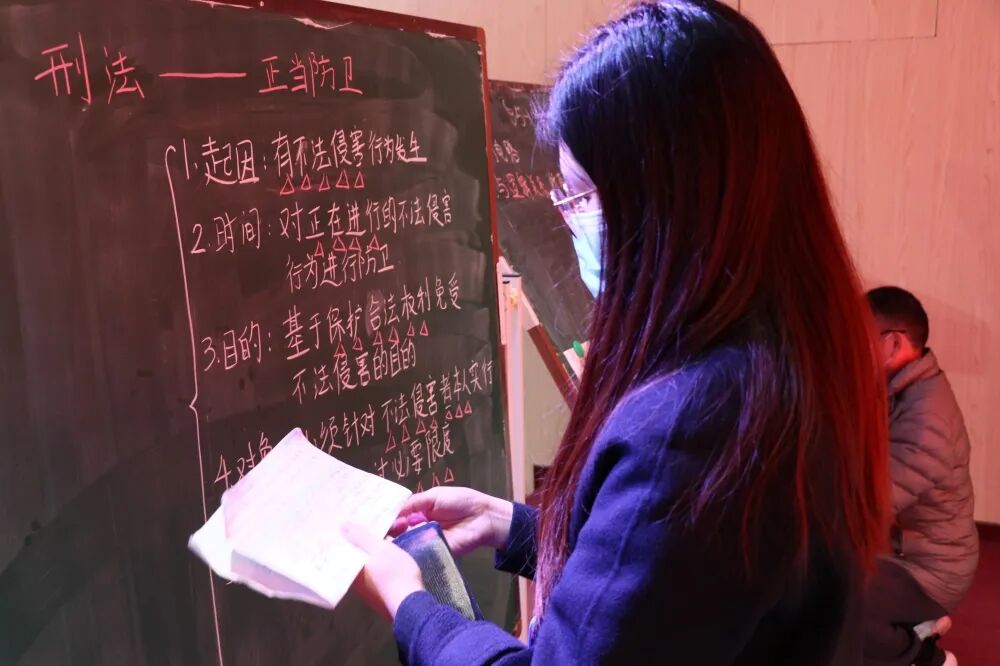 刑法——正当防卫
1.起因：有不法侵害行为发生
2.时间：对正在进行的不法侵害
行为进行防卫
3.目的：基于保护合法权利免受
不法侵害的目的
4.对象 须针对不法侵害者本人实行
必要限度